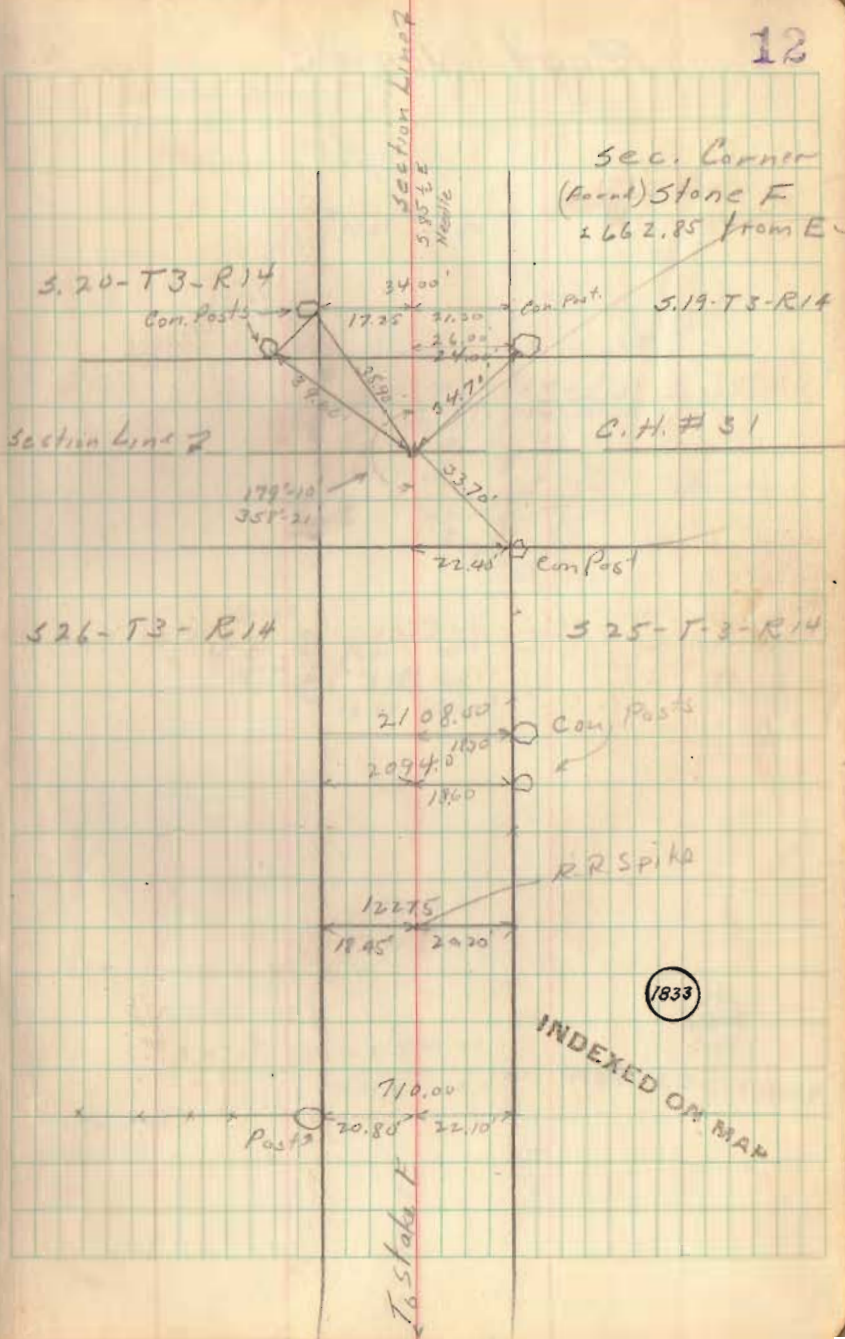 12
Section Line ?
S 85 ½ E
Needle
Sec. Corner
(Found) Stone F
2662.85 from E
S. 20-T3-R14
34.00'
Con. Posts
17.25
21.20
Con Post.
S.19-T3-R14
26.00'
24.00'
34.71'
Section Line ?
C.H. # 31
33.70'
179°-10
358°-21
22.40'
Con Post
S 26-T3-R14
S 25-T-3-R14
2108.50
Con Posts
2094.0'
18.60
R R Spike
1227.5
18.45'
20.20'
1833
INDEXED ON MAP
710.00
Posts
20.80'
22.10'
To Stake F